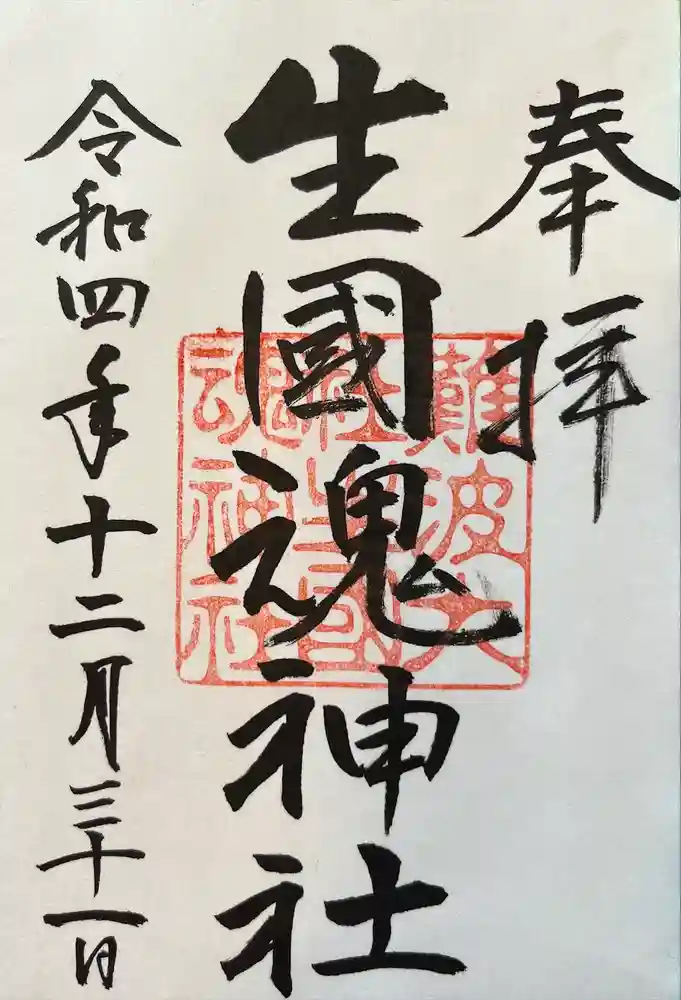 奉拝
生國魂神社
難波大
社生国
魂神社
令和四年十二月三十一日